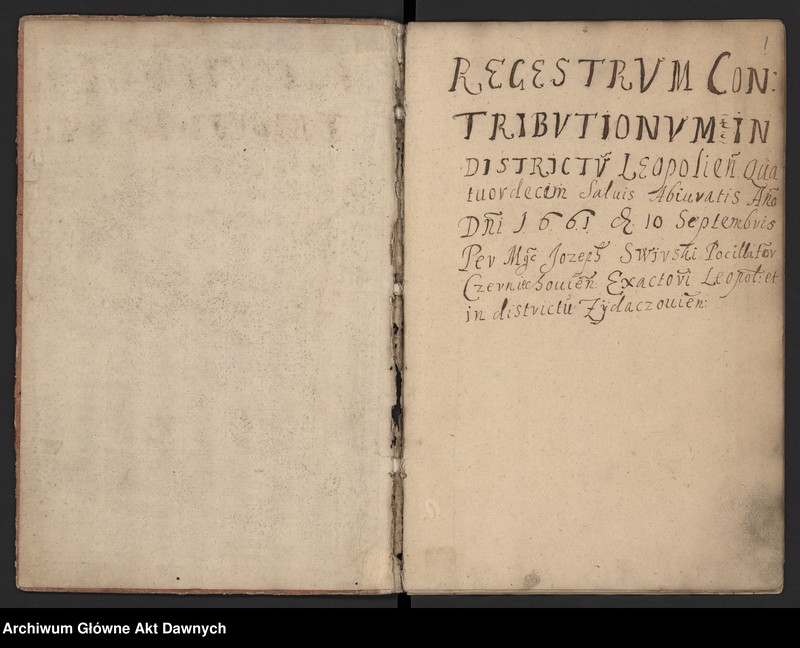 1
REGESTRVM CON:
TRIBVTIONVM IN
DISTRICTŨ LEOPolień Qua
tuordecim Saluis Abiuratis Año
Dñi 1661 d. 10 Septembris
Per Mgc Jozeph Swirski Pocillator
Czerniechouień: Exactori Leopol: et
in districtu Zÿdaczouień:
Archiwum Główne Akt Dawnych